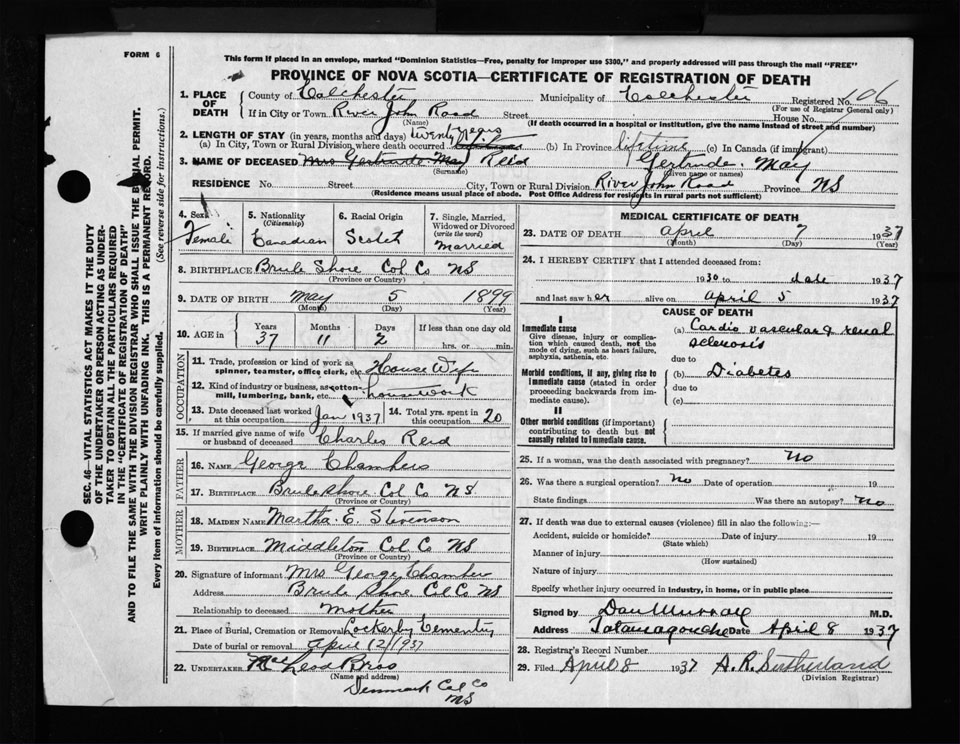 FORM 6
This form if placed in an envelope, marked "Dominion Statistics—Free, penalty for improper use $300," and properly addressed will pass through the mail "FREE"
PROVINCE OF NOVA SCOTIA—CERTIFICATE OF REGISTRATION OF DEATH
SEC. 46—VITAL STATISTICS ACT MAKES IT THE DUTY
OF THE UNDERTAKER OR PERSON ACTING AS UNDER-
TAKER TO OBTAIN ALL THE PARTICULARS REQUIRED
IN THE "CERTIFICATE OF REGISTRATION OF DEATH"
AND TO FILE THE SAME WITH THE DIVISION REGISTRAR WHO SHALL ISSUE THE BURIAL PERMIT.
WRITE PLAINLY WITH UNFADING INK. THIS IS A PERMANENT RECORD.
Every item of information should be carefully supplied. (See reverse side for instructions.)
1. PLACE OF DEATH
County of Colchester Municipality of Colchester Registered No. 906
(For use of Registrar General only)
If in City or Town River John Road Street House No.
(Name) (If death occurred in a hospital or institution, give the name instead of street and number)
2. LENGTH OF STAY (in years, months and days) twenty years
(a) In City, Town or Rural Division where death occurred (b) In Province lifetime (c) In Canada (if immigrant)
3. NAME OF DECEASED Mrs Gertrude May Reid Gertrude. May
(Surname) (Given name or names)
RESIDENCE No. Street City, Town or Rural Division River John Road Province NS
(Residence means usual place of abode. Post Office Address for residents in rural parts not sufficient)
4. Sex Female
5. Nationality (Citizenship) Canadian
6. Racial Origin Scotch
7. Single, Married, Widowed or Divorced (write the word) Married
8. BIRTHPLACE Brule Shore Col Co NS
(Province or Country)
9. DATE OF BIRTH May 5 1899
(Month) (Day) (Year)
10. AGE in Years 37 Months 11 Days 2 If less than one day old hrs. or min.
OCCUPATION
11. Trade, profession or kind of work as spinner, teamster, office clerk, etc. House Wife
12. Kind of industry or business, as cotton-mill, lumbering, bank, etc. housework
13. Date deceased last worked at this occupation Jan 1937
14. Total yrs. spent in this occupation 20
15. If married give name of wife or husband of deceased Charles Reid
FATHER
16. NAME George Chambers
17. BIRTHPLACE Brule Shore Col Co NS
(Province or Country)
MOTHER
18. MAIDEN NAME Martha E. Stevenson
19. BIRTHPLACE Middleton Col Co NS
(Province or Country)
20. Signature of informant Mrs George Chambers
Address Brule Shore Col Co NS
Relationship to deceased Mother
21. Place of Burial, Cremation or Removal Lockerby Cementry
Date of burial or removal April 12/1937
22. UNDERTAKER MacLeod Bros
(Name and address)
Denmark Col Co
NS
MEDICAL CERTIFICATE OF DEATH
23. DATE OF DEATH April 7 1937
(Month) (Day) (Year)
24. I HEREBY CERTIFY that I attended deceased from:
1930 to date 1937
and last saw her alive on April 5 1937
CAUSE OF DEATH
I
Immediate cause
Give disease, injury or complication which caused death, not the mode of dying, such as heart failure, asphyxia, asthenia, etc.
(a) Cardio vascular & renal
sclerosis
due to
Morbid conditions, if any, giving rise to immediate cause (stated in order proceeding backwards from immediate cause).
(b) Diabetes
due to
(c)
II
Other morbid conditions (if important) contributing to death but not causally related to immediate cause.
25. If a woman, was the death associated with pregnancy? No
26. Was there a surgical operation? No Date of operation 19
State findings Was there an autopsy? No
27. If death was due to external causes (violence) fill in also the following:—
Accident, suicide or homicide? Date of injury 19
(State which)
Manner of injury
(How sustained)
Nature of injury
Specify whether injury occurred in industry, in home, or in public place
Signed by Dan Murray M.D.
Address Tatamagouche Date April 8 1937
28. Registrar's Record Number
29. Filed April 8 1937 A. R. Sutherland
(Division Registrar)